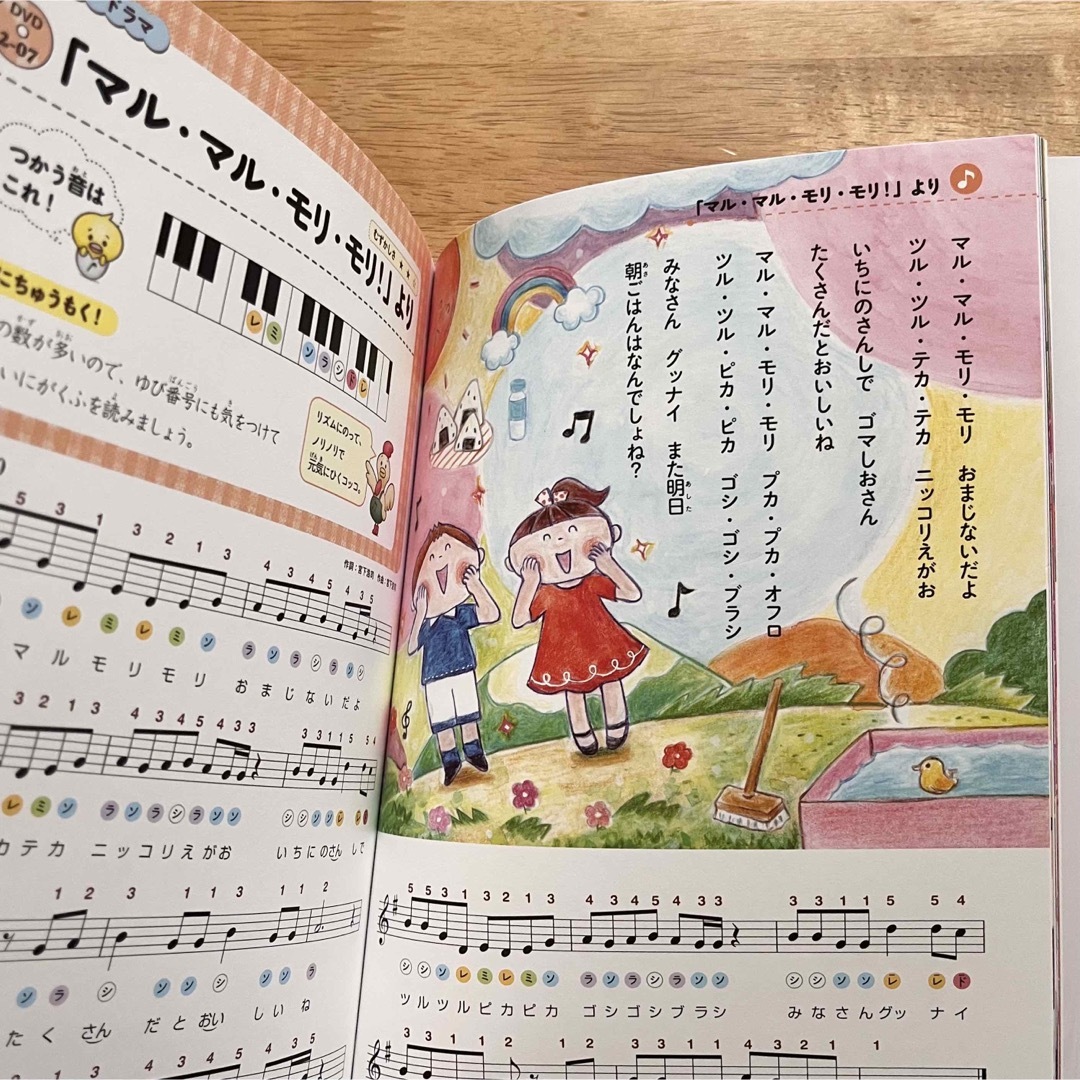 DVD
2-07
ドラマ
「マル・マル・モリ・モリ!」より
つかう音は
これ!
むずかしさ ★★
にちゅうもく!
レ ミ ソ ラ シ ド レ
の数が多いので、ゆび番号にも気をつけて
いにがくふを読みましょう。
リズムにのって、
ノリノリで
元気にひくコッコ。
5 3 1 3 2 1 3 4 3 4 5 4 3 5
ソ レ ミ レ ミ ソ ラ ソ ラ シ ラ ソ シ
マ ル モ リ モ リ お ま じ な い だ よ
3 2 1 3 4 3 4 5 4 3 3 3 3 1 1 5 5 4
レ ミ ソ ラ ソ ラ シ ラ ソ ソ シ シ ソ ソ レ レ ド
カ テ カ ニ ッ コ リ え が お い ち に の さん し で
1 2 3 1 1 3 1 1 2
ソ ラ シ ソ ソ シ ソ ソ ラ
た く さん だ と おい し い ね
「マル・マル・モリ・モリ!」より
マル・マル・モリ・モリ おまじないだよ
ツル・ツル・テカ・テカ ニッコリえがお
いちにのさんしで ゴマしおさん
たくさんだとおいしいね
マル・マル・モリ・モリ プカ・プカ・オフロ
ツル・ツル・ピカ・ピカ ゴシ・ゴシ・ブラシ
みなさん グッナイ また明日
朝ごはんはなんでしょね?
5 5 3 1 3 2 1 3 4 3 4 5 4 3 3 3 3 1 1 5 5 4
シ シ ソ レ ミ レ ミ ソ ラ ソ ラ シ ラ ソ ソ シ シ ソ ソ レ レ ド
ツ ル ツ ル ピ カ ピ カ ゴ シ ゴ シ ブ ラ シ み な さ ん グッ ナ イ